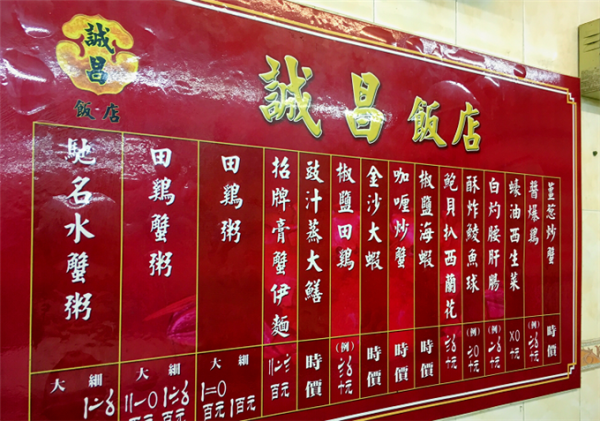 誠昌飯店
誠昌
飯店
薑葱炒蟹
時價
醬爆鷄
蠔油西生菜
白灼腰肝腸
酥炸鯪魚球
鮑貝扒西蘭花
椒鹽海蝦
時價
咖喱炒蟹
時價
金沙大蝦
時價
椒鹽田鷄
豉汁蒸大鱔
時價
招牌膏蟹伊麵
田鷄粥
大 細
田鷄蟹粥
大 細
馳名水蟹粥
大 細